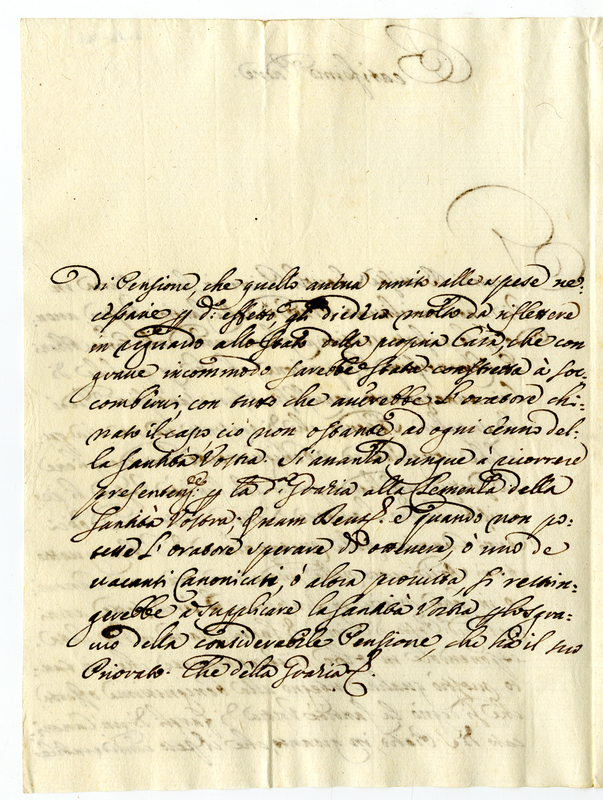 di Pensione, che quello aveva unito alle spese ne:
cessarie p d.º effetto, gli diedero molto da riflettere
in riguardo allo stato della propria Casa, che con
grave incommodo sarebbe stata constretta à soc:
combervi, con tutto che averebbe l'oratore chi:
nato il capo ciò non ostante, ad ogni cenno del:
la Santità Vostra. Si avanza dunque à ricorrere
p la d.ª Grazia alla Clemenza della
Santità Vostra, e quando non po:
tesse l'oratore sperare di ottenere, ò uno de
vacanti Canonicati, ò altra provista, si restrin:
gerebbe a supplicare la Santità Vostra p lo sgra:
vio della considerabile Pensione, che hà il suo
Priorato. Che della Grazia